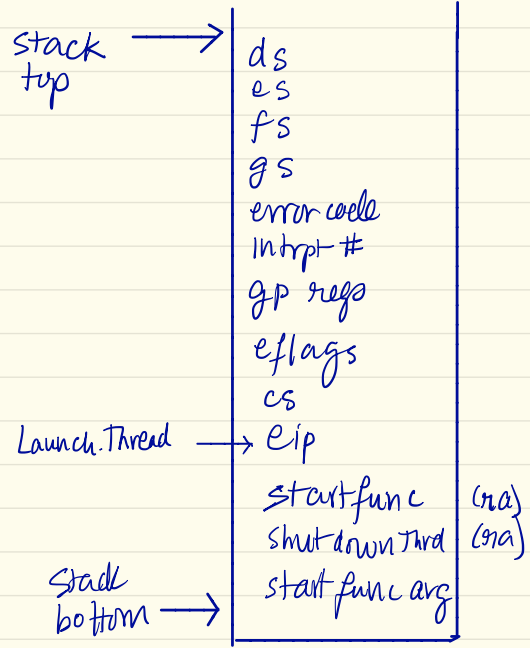 stack
top
ds
es
fs
gs
error code
Intrpt #
gp regs
eflags
cs
Launch.Thread
eip
startfunc (ra)
shutdownThrd (ra)
startfunc arg
stack
bottom